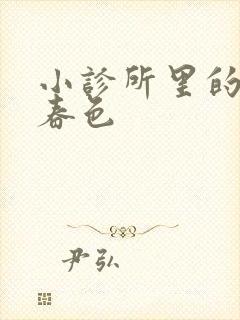 小診所里的
春色
尹弘